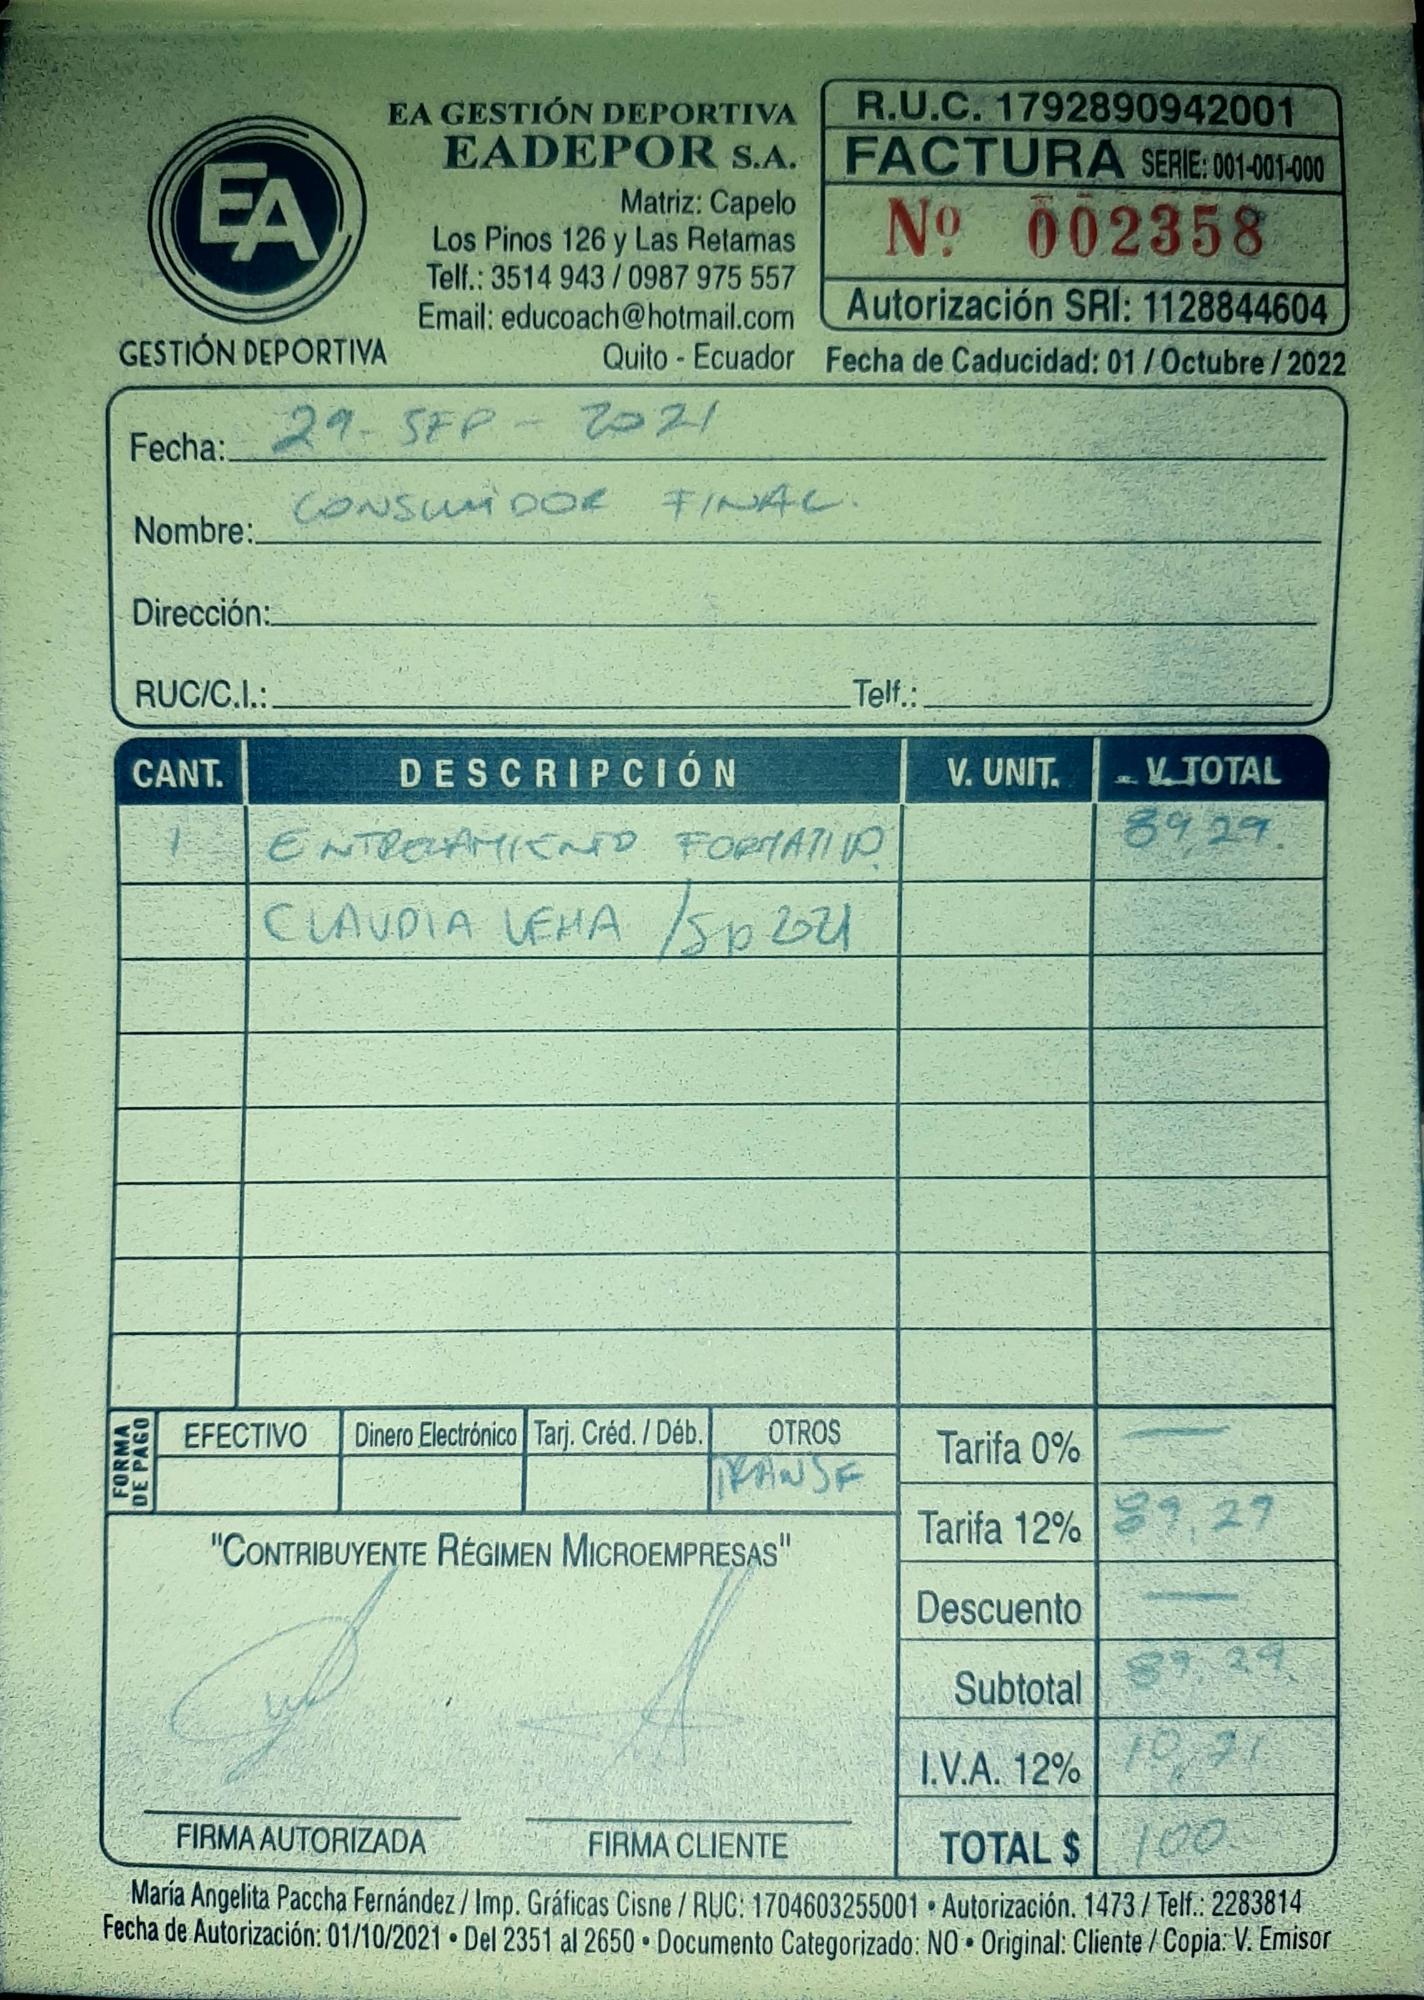 EA
GESTIÓN DEPORTIVA
EA GESTIÓN DEPORTIVA
EADEPOR S.A.
Matriz: Capelo
Los Pinos 126 y Las Retamas
Telf.: 3514 943 / 0987 975 557
Email: educoach@hotmail.com
Quito - Ecuador
R.U.C. 1792890942001
FACTURA SERIE: 001-001-000
Nº 002358
Autorización SRI: 1128844604
Fecha de Caducidad: 01 / Octubre / 2022
Fecha: 29-SEP-2021
Nombre: CONSUMIDOR FINAL.
Dirección:
RUC/C.I.: Telf.:
CANT. DESCRIPCIÓN V. UNIT. V. TOTAL
1 ENTRENAMIENTO FORMATIVO 89,29.
CLAUDIA /Sp 2021
FORMA DE PAGO
EFECTIVO Dinero Electrónico Tarj. Créd. / Déb. OTROS
TRANSF
Tarifa 0% —
Tarifa 12% 89,29
Descuento —
Subtotal 89,29.
I.V.A. 12% 10,71
TOTAL $ 100
"CONTRIBUYENTE RÉGIMEN MICROEMPRESAS"
FIRMA AUTORIZADA FIRMA CLIENTE
María Angelita Paccha Fernández / Imp. Gráficas Cisne / RUC: 1704603255001 • Autorización. 1473 / Telf.: 2283814
Fecha de Autorización: 01/10/2021 • Del 2351 al 2650 • Documento Categorizado: NO • Original: Cliente / Copia: V. Emisor